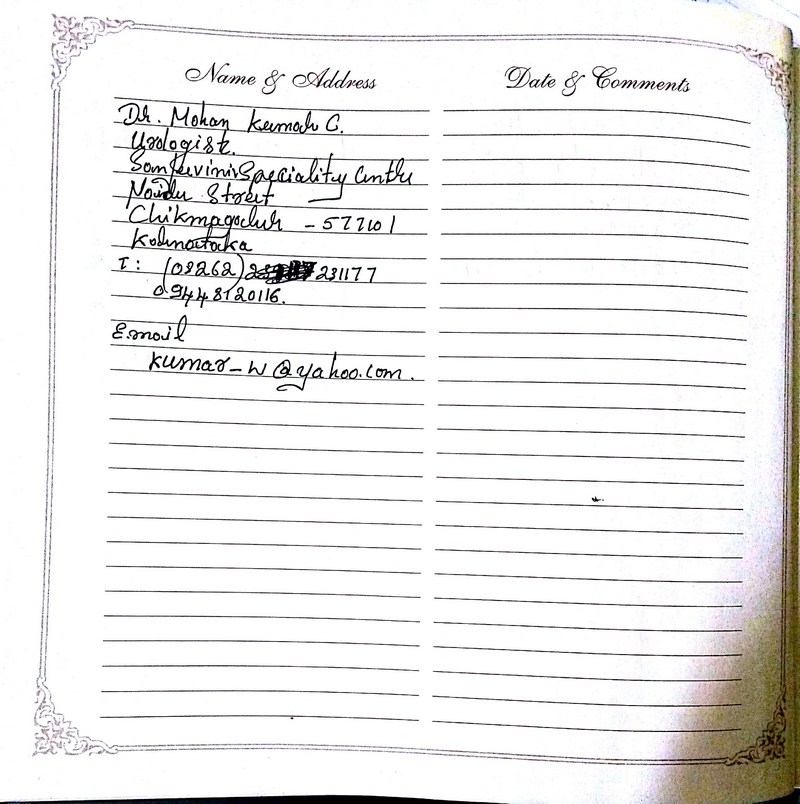 Name & Address
Date & Comments
Dr. Mohan Kumar C.
Urologist.
Speciality Centre
Naidu Street
Chikmagalur - 577101
Karnataka
T: (08262) 231177
09448120116.
Email
kumar-w@yahoo.com.